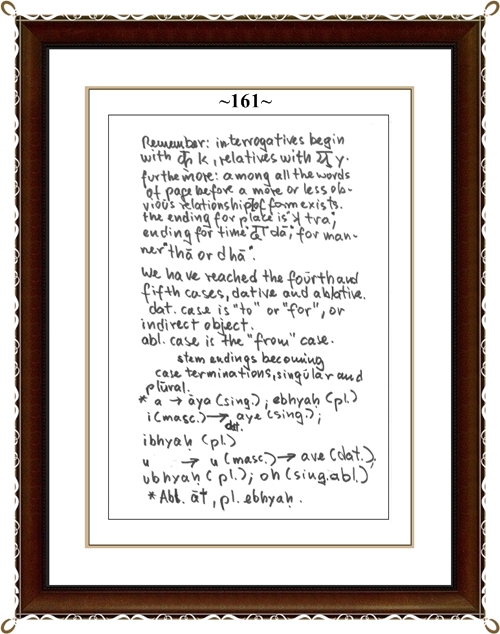 ~161~
Remember: interrogatives begin
with क् k, relatives with य् y.
furthemore: among all the words
of page before a more or less ob-
vious relationship of form exists.
the ending for place is त्र tra;
ending for time दा dā; for man-
ner "thā or dhā".
We have reached the fourth and
fifth cases, dative and ablative.
dat. case is "to" or "for", or
indirect object.
abl. case is the "from" case.
stem endings becoming
case terminations, singular and
plural.
* a → āya (sing.); ebhyaḥ (pl.)
i (masc.) → aye (sing.);
dat.
ibhyaḥ (pl.)
u → u (masc.) → ave (dat.),
ubhyaḥ (pl.); oh (sing. abl.)
* Abl. āt, pl. ebhyaḥ.